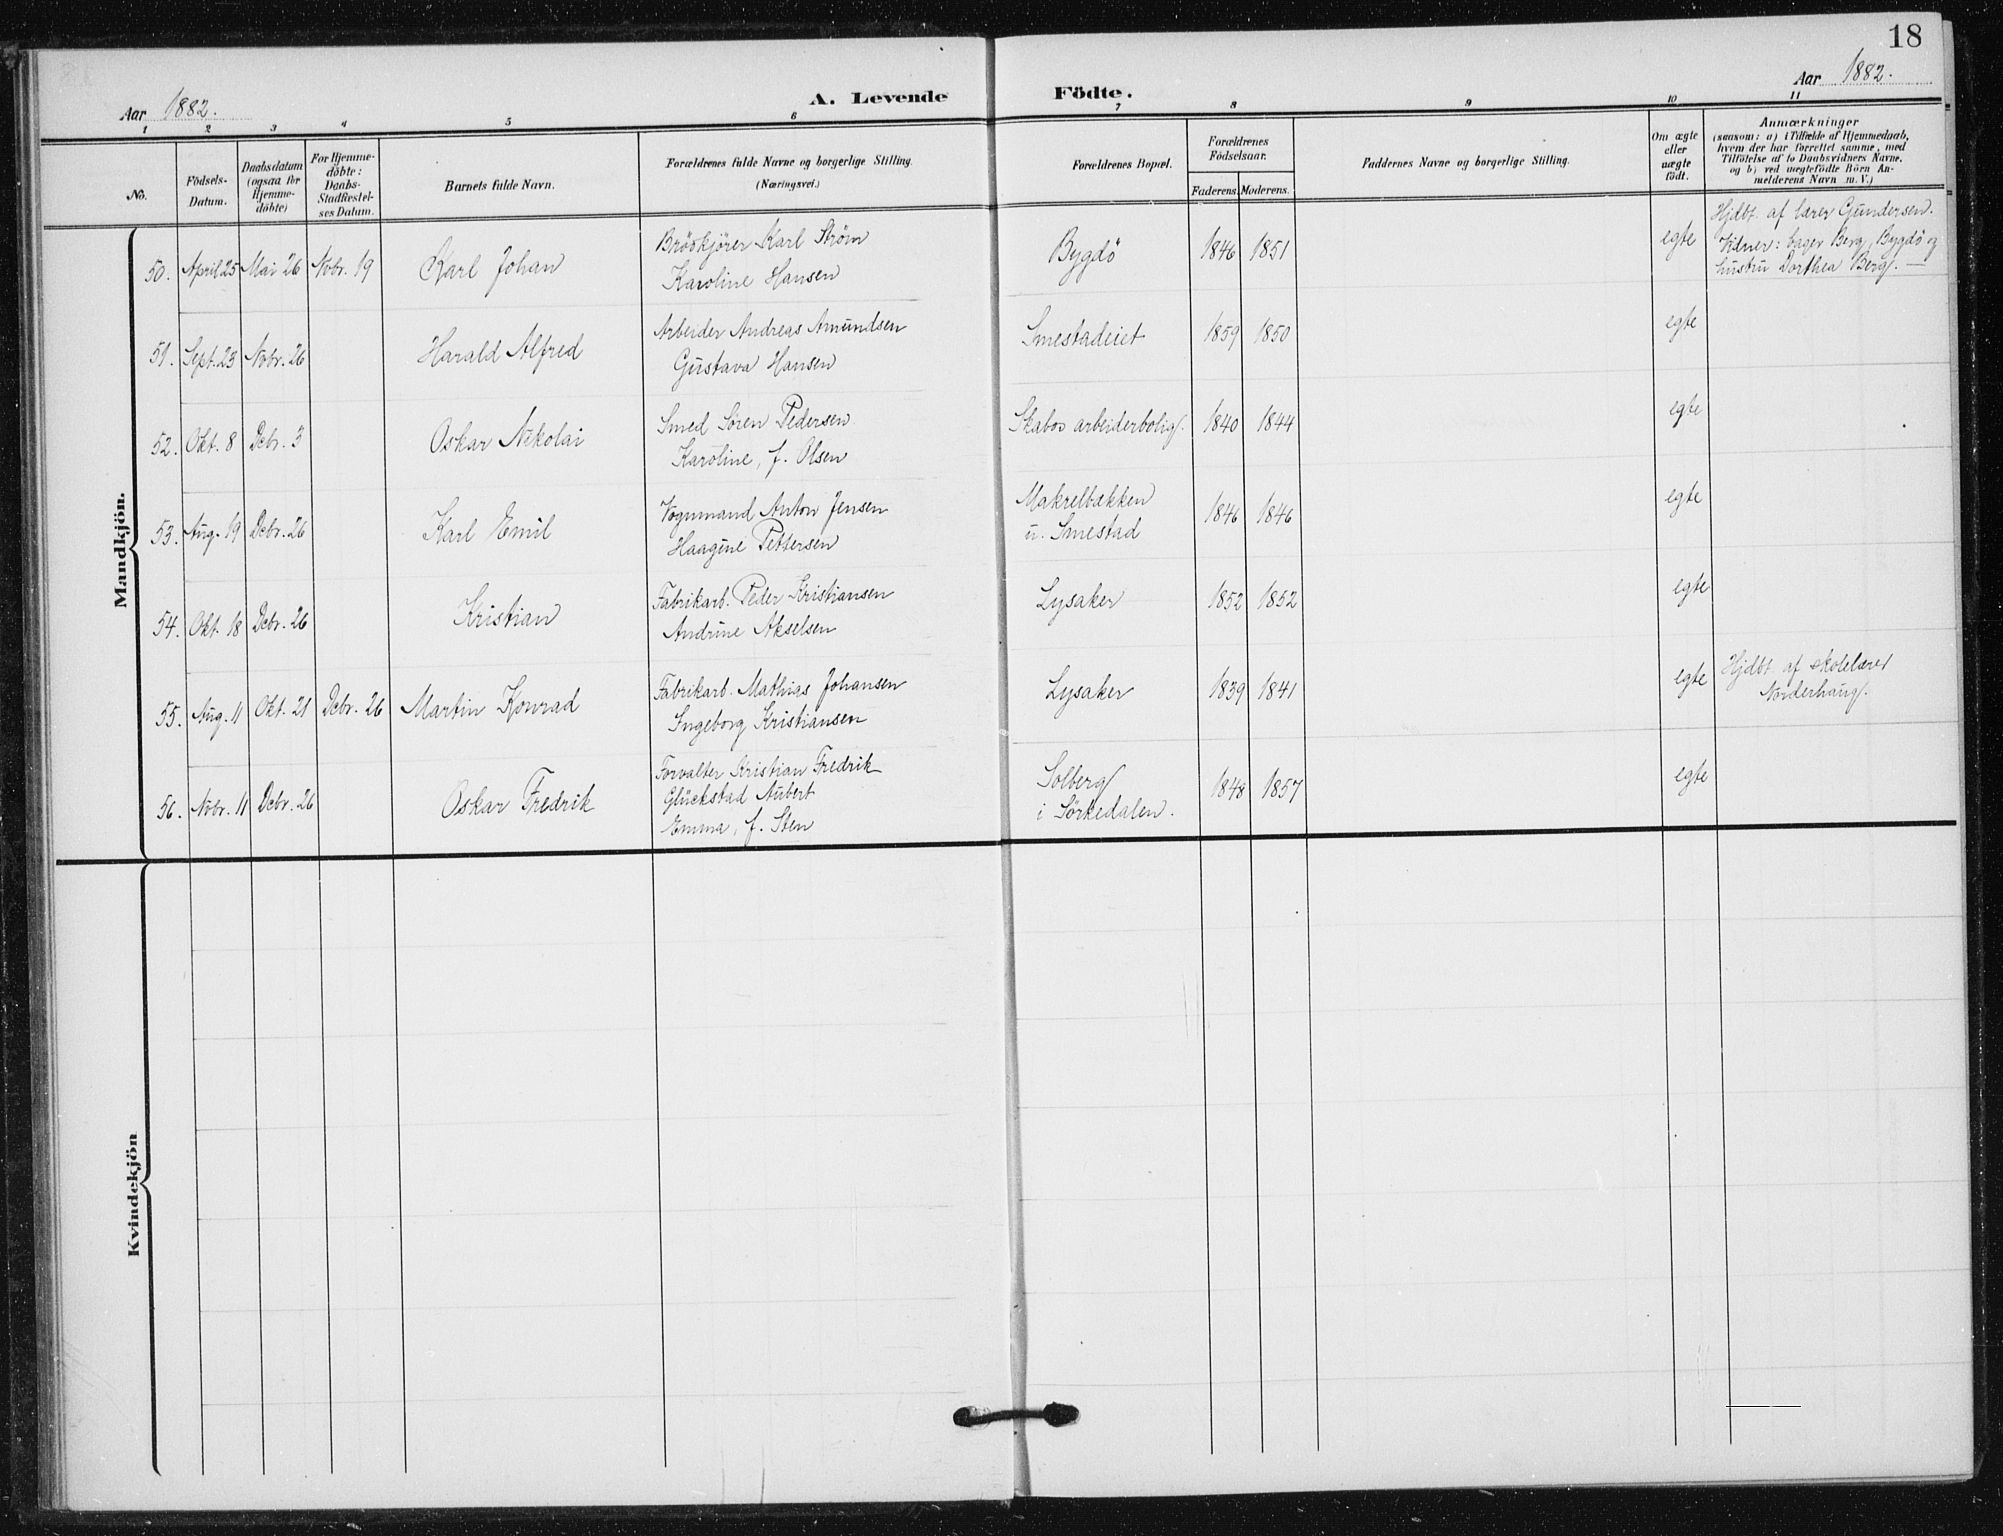 18
Aar 1882.
A. Levende Födte.
Aar 1882.
1 2 3 4 5 6 7 8 9 10 11
No.
Födsels-
Datum.
Daabsdatum
(ogsaa for
Hjemme-
döbte)
For Hjemme-
döbte:
Daabs-
Stadfæstel-
ses Datum.
Barnets fulde Navn.
Forældrenes fulde Navne og borgerlige Stilling.
(Næringsvei.)
Forældrenes Bopæl.
Forældrenes
Födselsaar.
Faderens. Moderens.
Faddernes Navne og borgerlige Stilling.
Om ægte
eller
uægte
födt.
Anmærkninger
(saasom: a) i Tilfælde af Hjemmedaab,
hvem der har forrettet samme, med
Tilföielse af to Daabsvidners Navne,
og b) ved uægtefödte Börn An-
melderens Navn m. V.)
Mandkjön.
50. April 25 Mai 26 Novbr. 19 Karl Johan
Brödkjörer Karl Ström
Karoline Hansen
Bygdö 1846 1851 egte
Hjdbt. af lærer Gundersen.
Vidner: bager Berg, Bygdö og
hustru Dorthea Berg. —
51. Sept. 23 Novbr. 26 Harald Alfred
Arbeider Andreas Amundsen
Gustava Hansen
Smestadeiet 1859 1850 egte
52. Okt. 8 Decbr. 3 Oskar Nikolai
Smed Sören Pedersen
Karoline, f. Olsen
Skabos arbeiderbolig. 1840 1844 egte
53. Aug. 19 Decbr. 26 Karl Emil
Vognmand Anton Jensen
Haagine Pettersen
Makrelbækken
u. Smestad
1846 1846 egte
54. Okt. 18 Decbr. 26 Kristian
Fabrikarb. Peder Kristiansen
Andrine Akselsen
Lysaker 1852 1852 egte
55. Aug. 11 Okt. 21 Decbr. 26 Martin Konrad
Fabrikarb. Mathias Johansen
Ingeborg Kristiansen
Lysaker 1839 1841 egte
Hjdbt. af skolelærer
Norderhaug.
56. Novbr. 11 Decbr. 26 Oskar Fredrik
Forvalter Kristian Fredrik
Glückstad Aubert
Emma, f. Sten
Solberg
i Sörkedalen.
1848 1857 egte
Kvindekjön